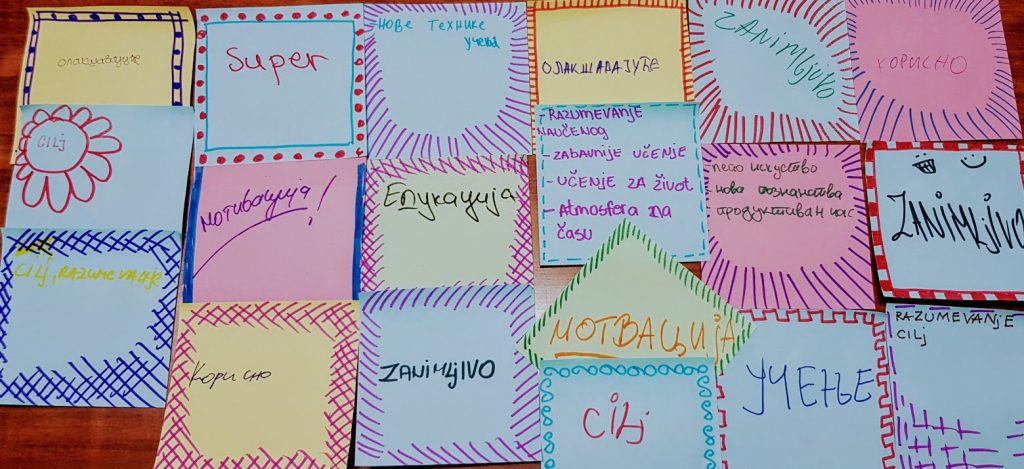 олакшавајуће
Super
-НОВЕ ТЕХНИКЕ
учења
ОЛАКШАВАЈУЋЕ
ZANIMLJIVO
КОРИСНО
CILJ
мотивација!
Едукација
- RAZUMEVANJE
NAUČENOG
- ZABAVNIJE UČENJE
- UČENJE ZA ŽIVOT
- Atmosfera na
času
лепо искуство
нова познанства
продуктиван час
ZANIMLJIVO
CILJ, RAZUMEVANJE
Корисно
ZANIMLJIVO
МОТВАЦИЈА
CILJ
УЧЕЊЕ
RAZUMEVANJE
CILJ